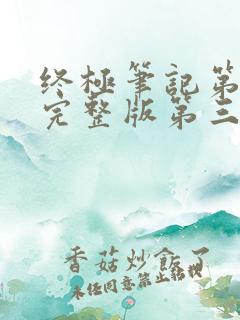 终极笔记第
完整版第三
香菇炒飯了
未经同意禁止转载